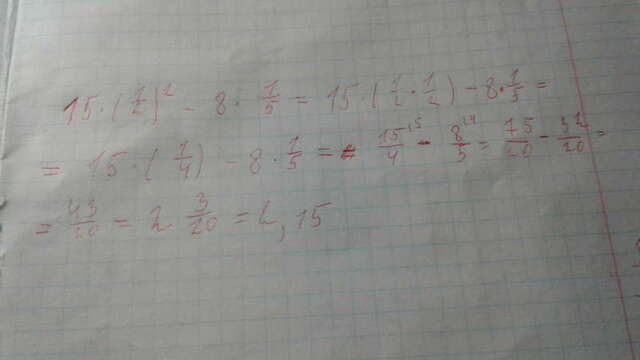 15·(1/2)² - 8·1/5 = 15·(1/2·1/2) - 8·1/5 =
= 15·(1/4) - 8·1/5 = 15/4 ⁵ - 8/5 ⁴ = 75/20 - 32/20 =
= 43/20 = 2 3/20 = 2,15